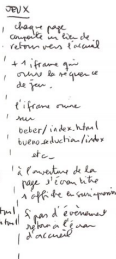 JEUX
chaque page
comporte un lien de
retour vers l'accueil
+ 1 iframe qui
ouvre la séquence
de jeu.
l'iframe ouvre
sur
beber/index.html
buenoseduction/index
etc
à l'ouverture de la
page l'écran titre
s'affiche en surimpression
si pas d'événement
retour à l'écran
d'accueil